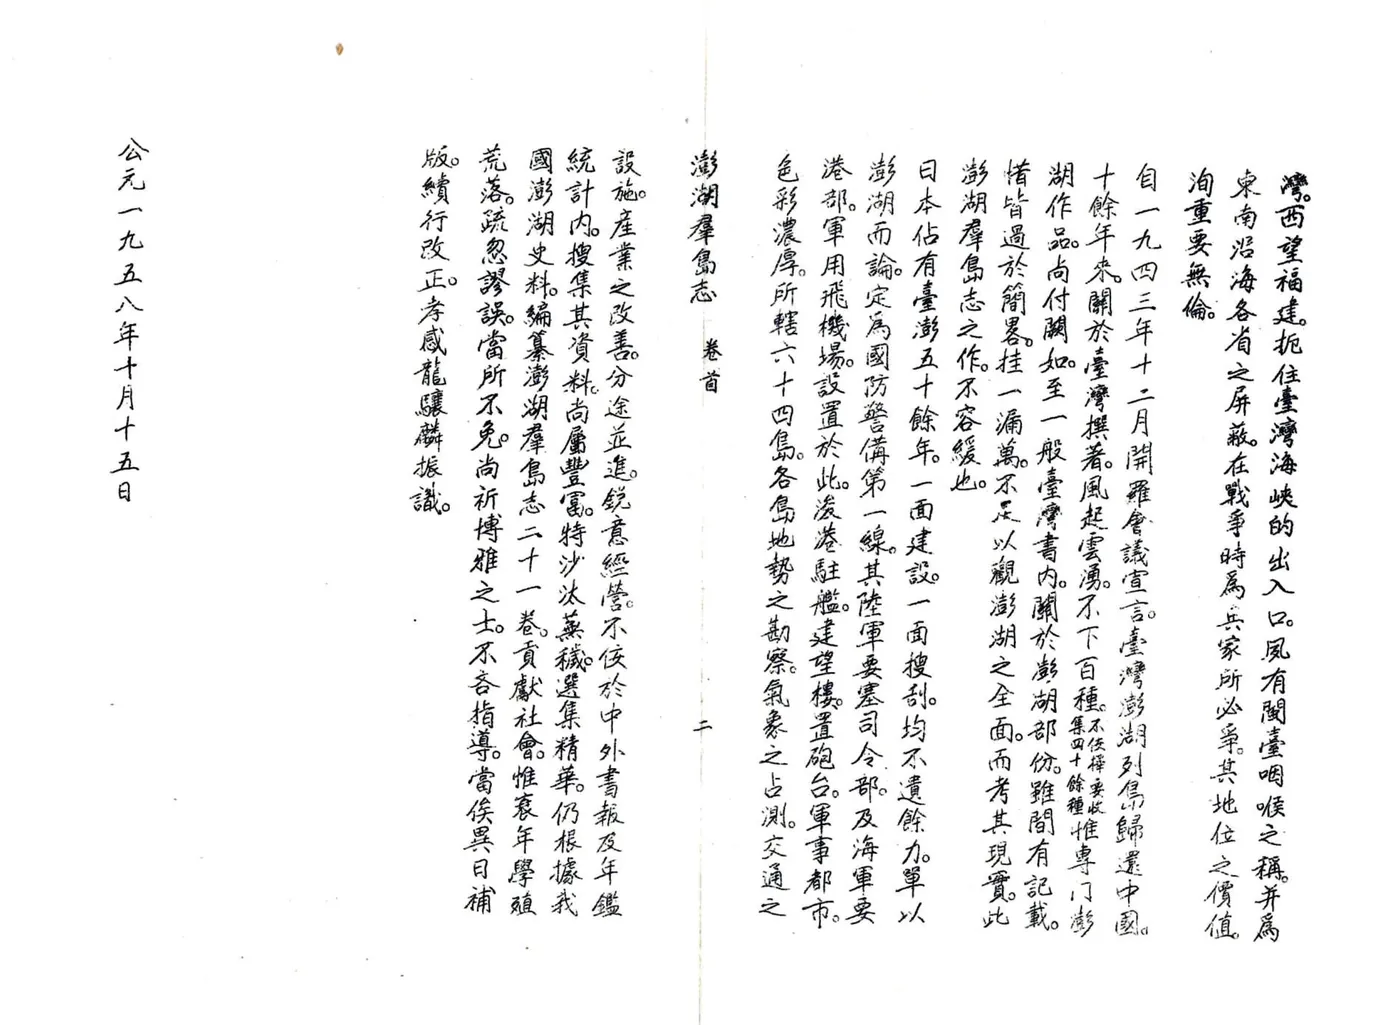 灣。西望福建。扼住臺灣海峽的出入口。夙有閩臺咽喉之稱。并為
東南沿海各省之屏蔽。在戰爭時為兵家所必爭。其地位之價值。
洵重要無倫。
自一九四三年十二月開羅會議宣言。臺灣澎湖列島歸還中國。
十餘年來。關於臺灣撰著。風起雲湧。不下百種。不佞擇要收集四十餘種惟專門澎
湖作品。尚付闕如。至一般臺灣書內。關於澎湖部份。雖間有記載。
惜皆過於簡畧。挂一漏萬。不足以觀澎湖之全面。而考其現實。此
澎湖羣島志之作。不容緩也。
日本佔有臺澎五十餘年。一面建設。一面搜刮。均不遺餘力。單以
澎湖而論。定為國防警備第一線。其陸軍要塞司令部。及海軍要
港部。軍用飛機場。設置於此。浚港駐艦。建望樓。置砲台。軍事都市。
色彩濃厚。所轄六十四島。各島地勢之勘察。氣象之占測。交通之
澎湖羣島志 卷首 二
設施。產業之改善。分途並進。銳意經營。不佞於中外書報及年鑑
統計內。搜集其資料。尚屬豐富。特沙汰蕪穢。選集精華。仍根據我
國澎湖史料。編纂澎湖羣島志二十一卷。貢獻社會。惟衰年學殖
荒落。疏忽謬誤。當所不免。尚祈博雅之士。不吝指導。當俟異日補
版。續行改正。孝感龍驤麟振識。
公元一九五八年十月十五日